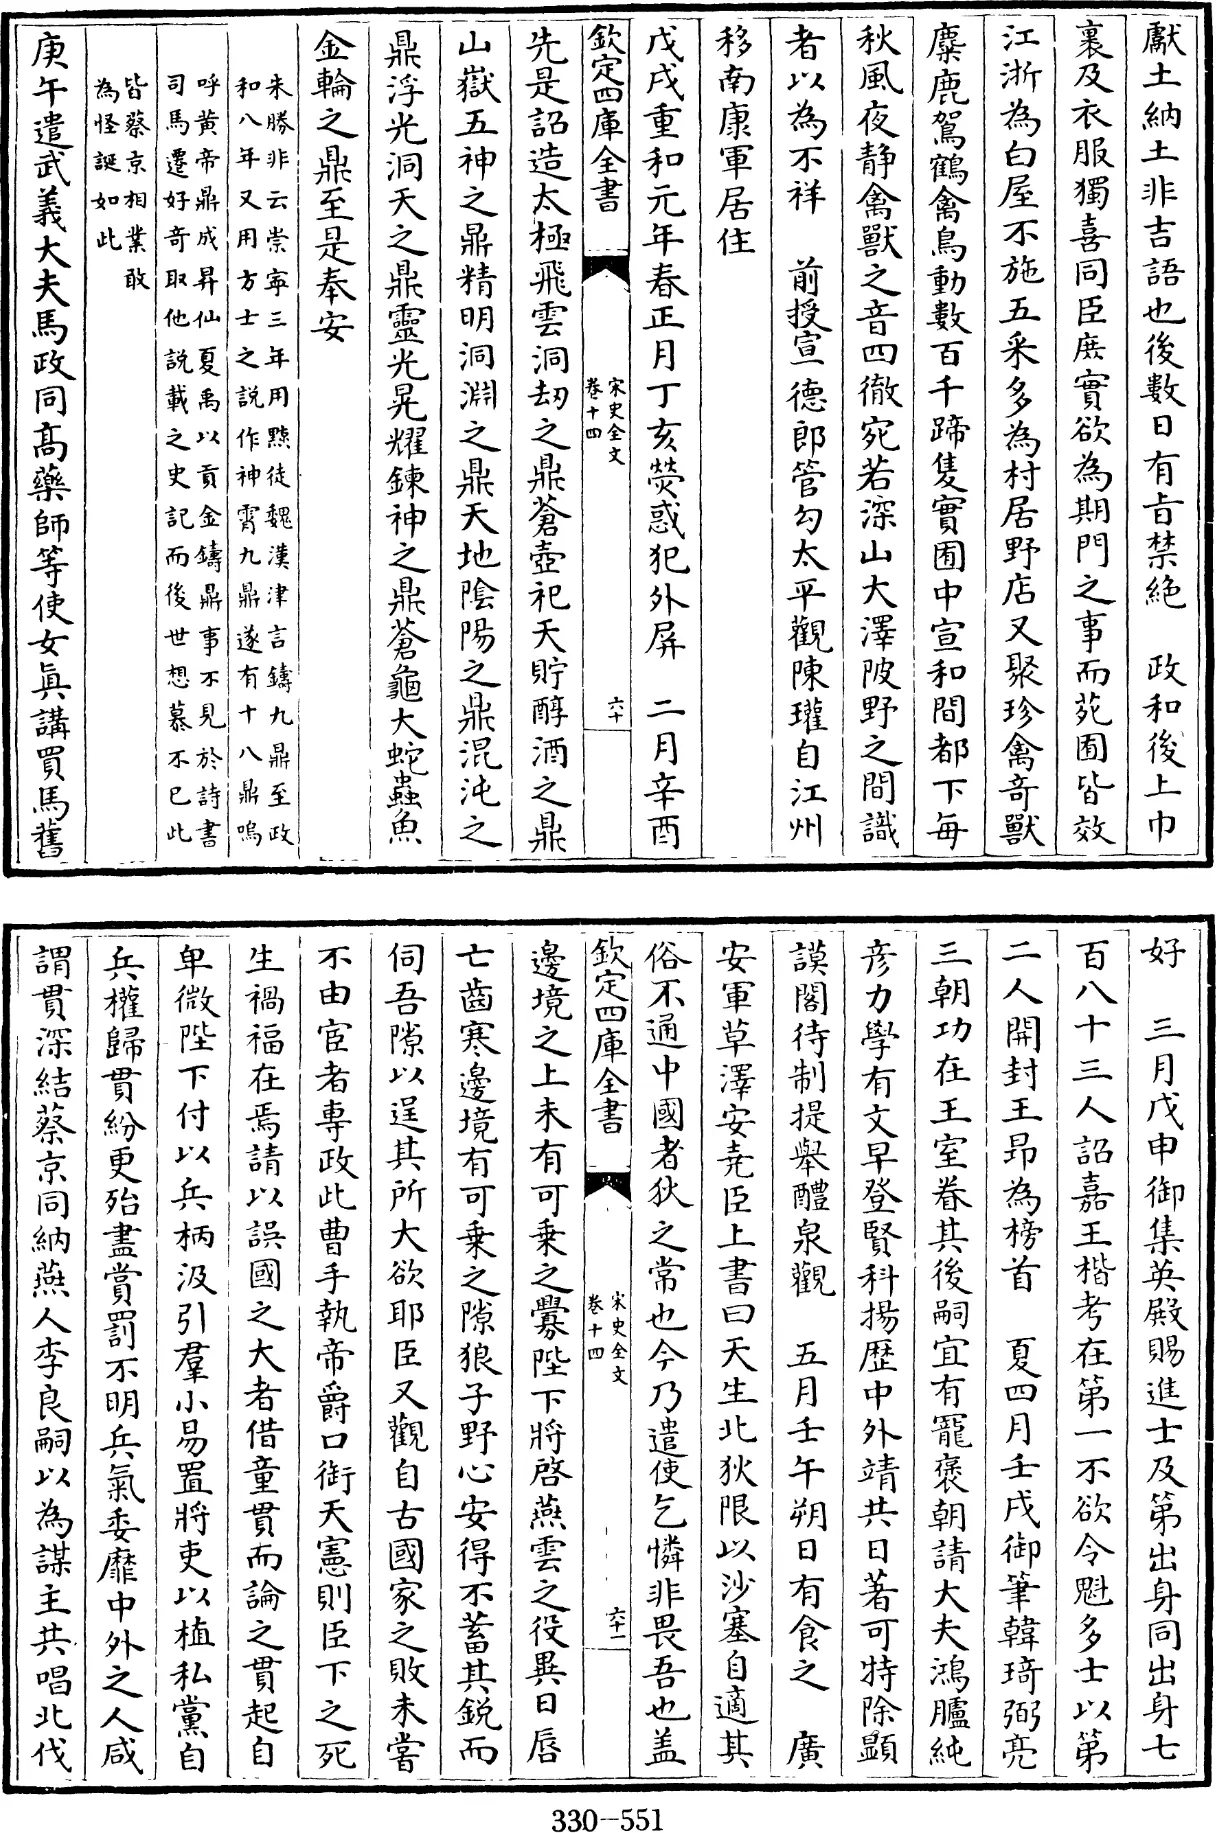 獻土納土非吉語也後數日有㫖禁絶　政和後上巾
裏及衣服獨喜同臣庶實欲為期門之事而苑囿皆效
江浙為白屋不施五采多為村居野店又聚珍禽竒獸
麋鹿鴐鶴禽鳥動數百千蹄隻實囿中宣和間都下每
秋風夜静禽獸之音四徹宛若深山大澤陂野之間識
者以為不祥　前授宣德郎管勾太平觀陳瓘自江州
移南康軍居住
戊戌重和元年春正月丁亥熒惑犯外屏　二月辛酉
欽定四庫全書
宋史全文
卷十四
六十
先是詔造太極飛雲洞劫之鼎蒼壺祀天貯醇酒之鼎
山嶽五神之鼎精明洞淵之鼎天地陰陽之鼎混沌之
鼎浮光洞天之鼎靈光晃耀鍊神之鼎蒼龜大蛇蟲魚
金輪之鼎至是奉安
朱勝非云崇寧三年用黥徒魏漢津言鑄九鼎至政
和八年又用方士之説作神霄九鼎遂有十八鼎嗚
呼黄帝鼎成昇仙夏禹以貢金鑄鼎事不見於詩書
司馬遷好竒取他説載之史記而後世想慕不已此
皆蔡京相業敢
為怪誕如此
庚午遣武義大夫馬政同髙藥師等使女真講買馬舊
好　三月戊申御集英殿賜進士及第出身同出身七
百八十三人詔嘉王楷考在第一不欲令魁多士以第
二人開封王昂為榜首　夏四月壬戌御筆韓琦弼亮
三朝功在王室眷其後嗣宜有寵褒朝請大夫鴻臚純
彦力學有文早登賢科揚歴中外靖共日著可特除顯
謨閣待制提舉醴泉觀　五月壬午朔日有食之　廣
安軍草澤安堯臣上書曰天生北狄限以沙塞自適其
俗不通中國者狄之常也今乃遣使乞憐非畏吾也盖
欽定四庫全書
宋史全文
卷十四
六十一
邊境之上未有可乗之釁陛下將啓燕雲之役異日唇
亡齒寒邊境有可乗之隙狼子野心安得不蓄其鋭而
伺吾隙以逞其所大欲耶臣又觀自古國家之敗未嘗
不由宦者専政此曹手執帝爵口銜天憲則臣下之死
生禍福在焉請以誤國之大者借童貫而論之貫起自
卑微陛下付以兵柄汲引羣小易置將吏以植私黨自
兵權歸貫紛更殆盡賞罰不明兵氣委靡中外之人咸
謂貫深結蔡京同納燕人李良嗣以為謀主共唱北伐
330-551